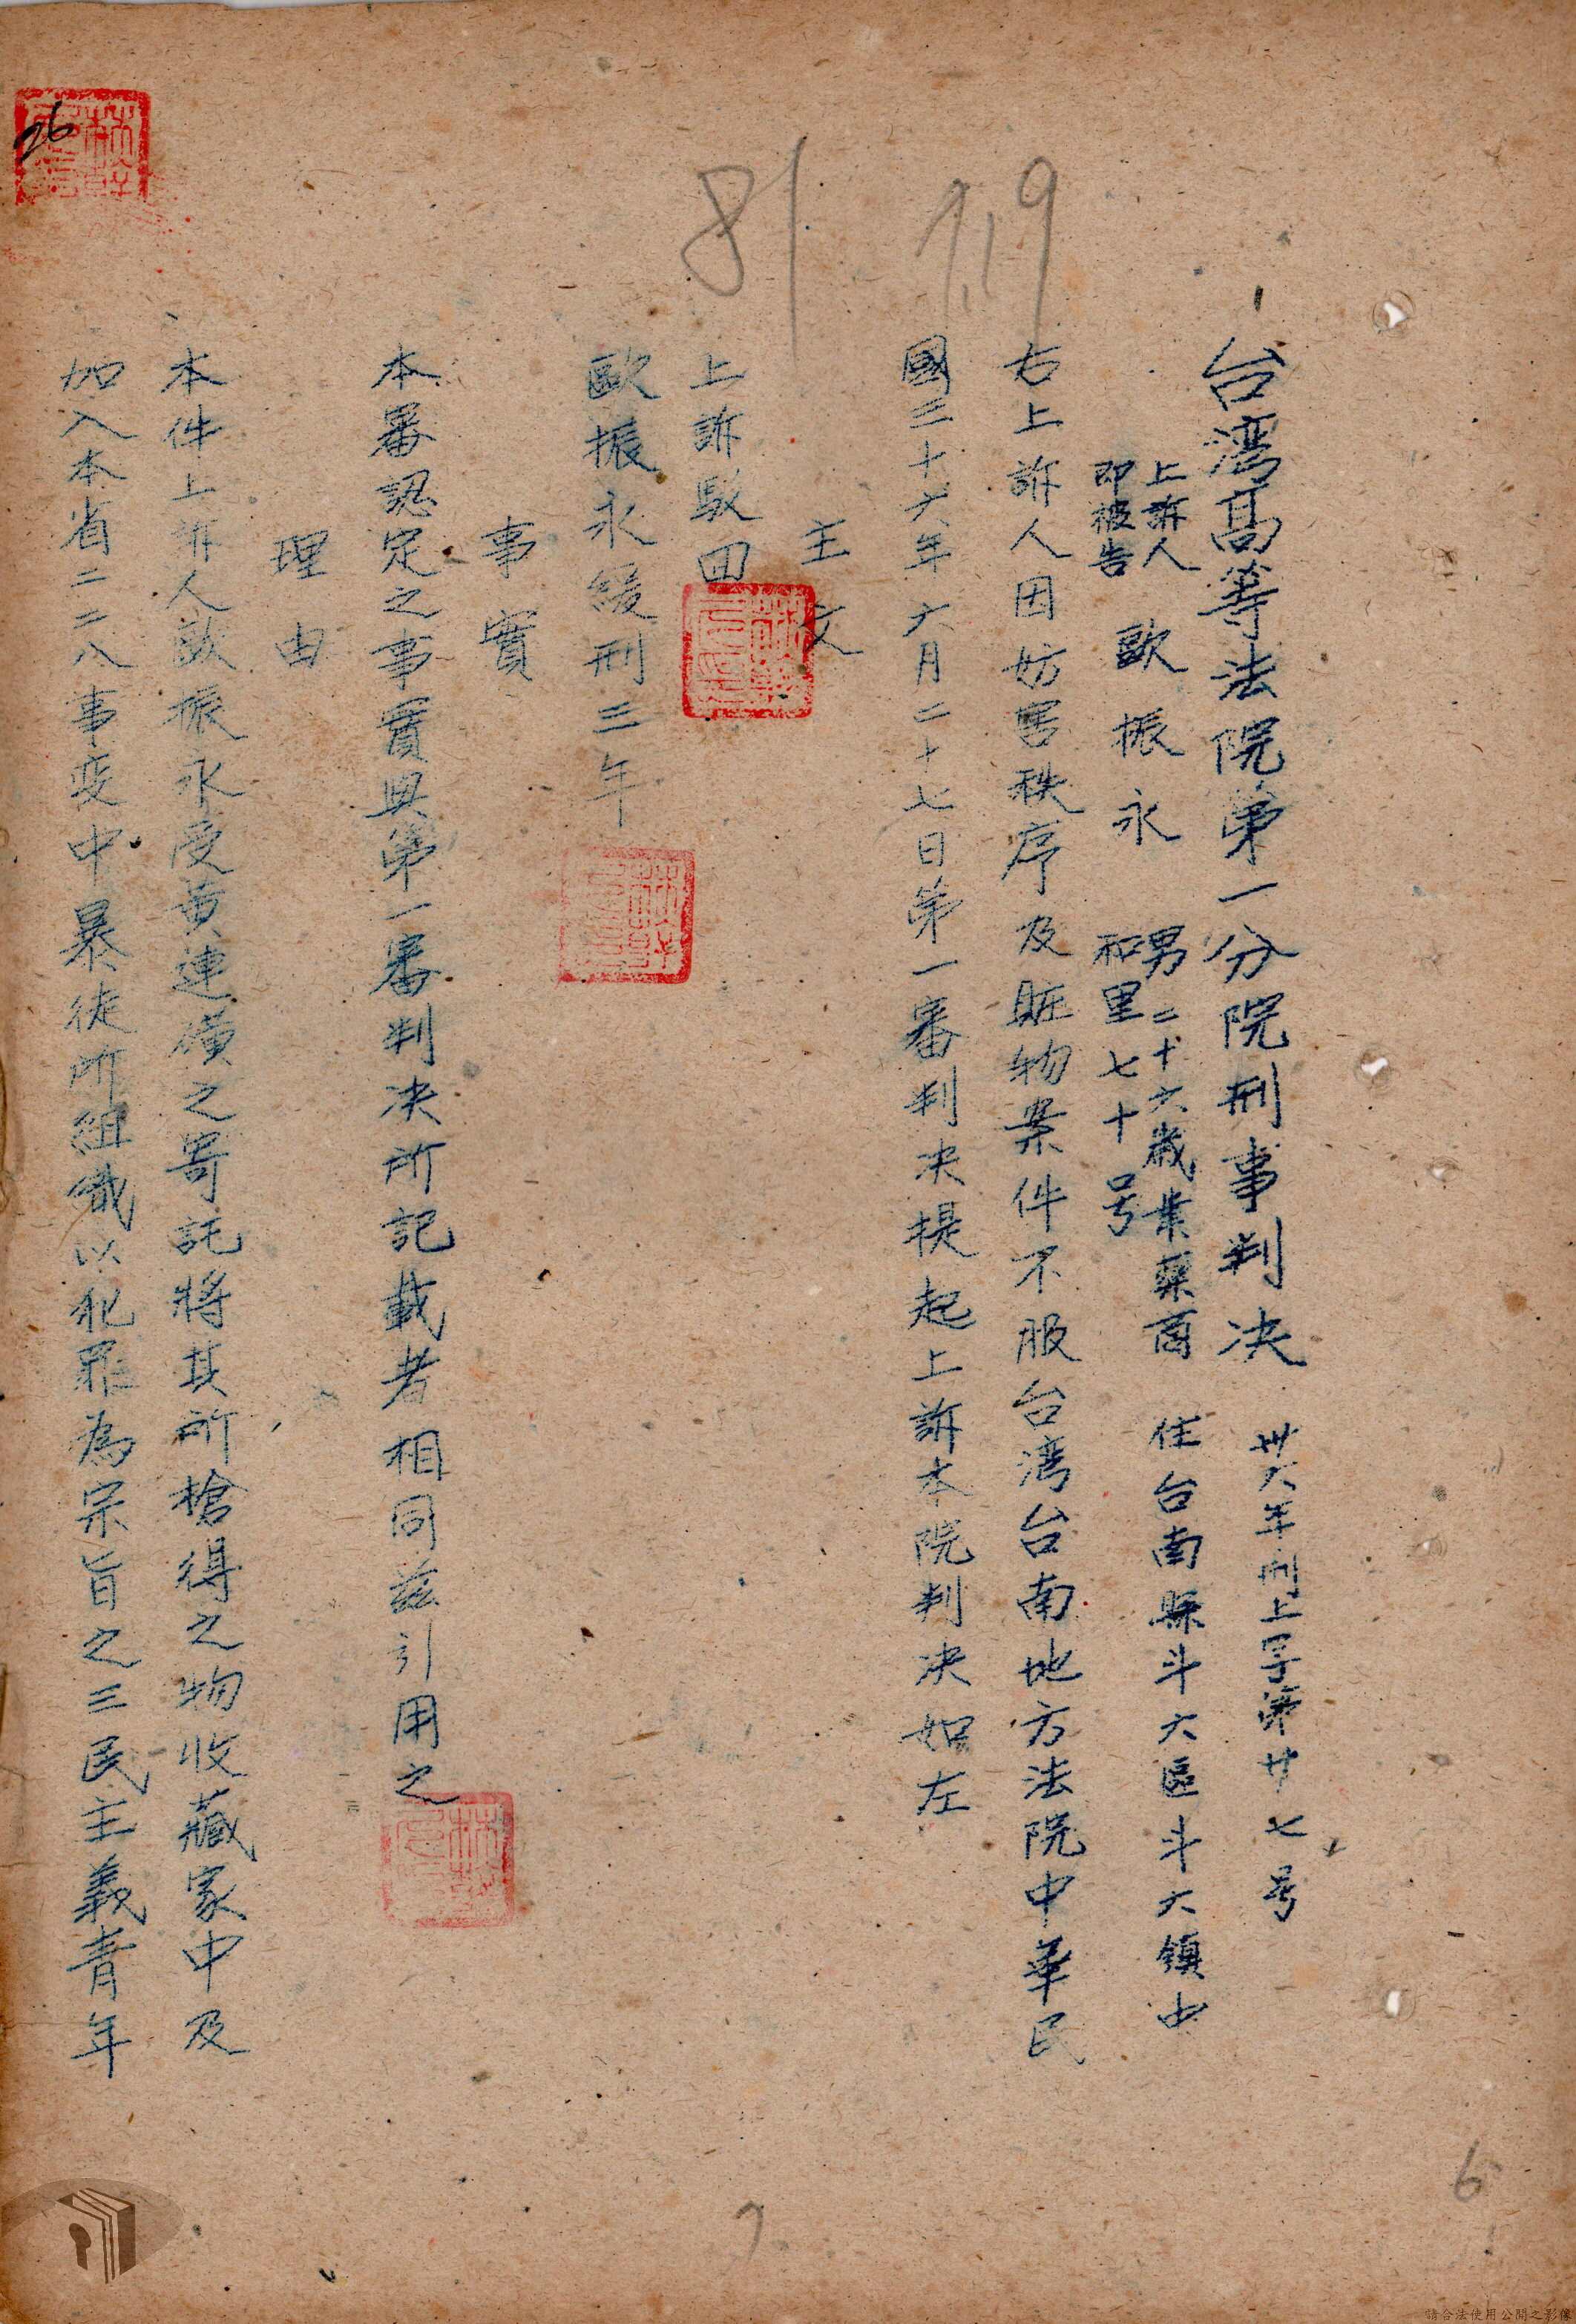 台湾高等法院第一分院刑事判决 卅六年刑上字第廿七号
上訴人
即被告 歐振永 男二十六歲業藥商 住台南縣斗六區斗六鎮中
和里七十号
右上訴人因妨害秩序及賍物案件不服台湾台南地方法院中華民
國三十六年六月二十七日第一審判决提起上訴本院判决如左
主文
上訴駁回
歐振永緩刑三年
事實
本審認定之事實與第一審判决所記載者相同茲引用之
理由
本件上訴人歐振永受黄連磺之寄託將其所槍得之物收藏家中及
加入本省二二八事变中暴徒所組織以犯罪為宗旨之三民主義青年
81
26
6
請合法使用公開之影像